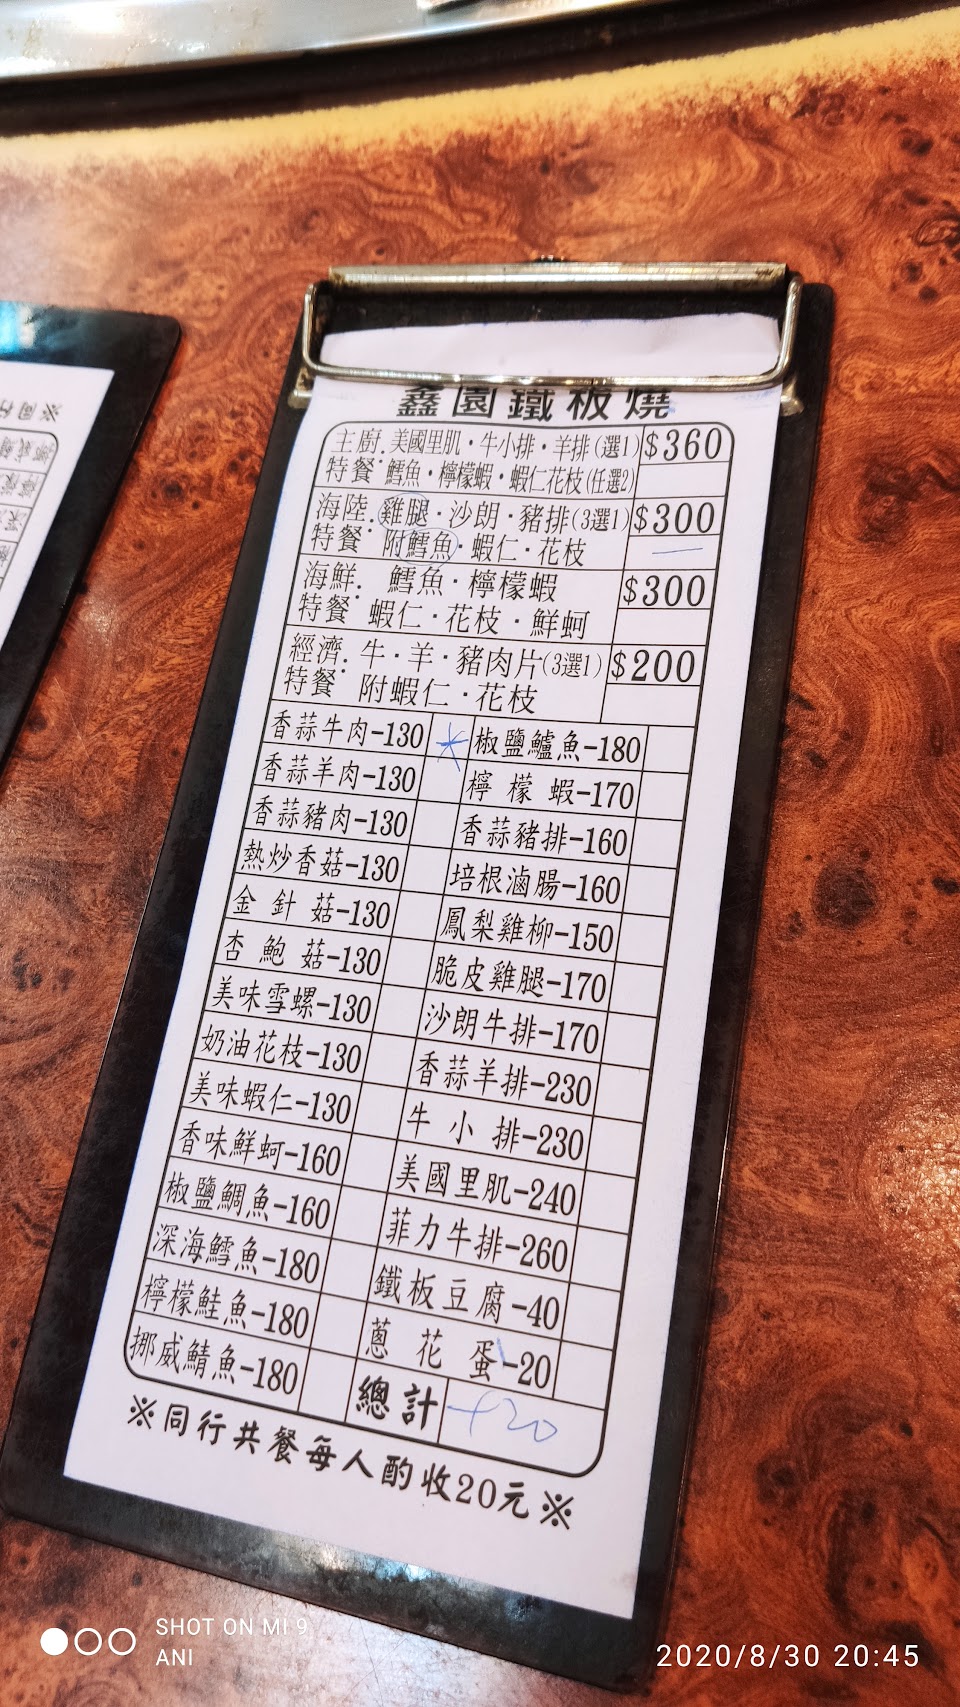 鑫園鐵板燒
主廚.美國里肌·牛小排·羊排(選1) $360
特餐.鱈魚·檸檬蝦·蝦仁花枝(任選2)
海陸.雞腿·沙朗·豬排(3選1) $300
特餐 附鱈魚·蝦仁·花枝 一
海鮮. 鱈魚·檸檬蝦 $300
特餐 蝦仁·花枝·鮮蚵
經濟.牛·羊·豬肉片(3選1) $200
特餐 附蝦仁·花枝
香蒜牛肉-130 椒鹽鱸魚-180
香蒜羊肉-130 檸檬蝦-170
香蒜豬肉-130 香蒜豬排-160
熱炒香菇-130 培根滷腸-160
金針菇-130 鳳梨雞柳-150
杏鮑菇-130 脆皮雞腿-170
美味雪螺-130 沙朗牛排-170
奶油花枝-130 香蒜羊排-230
美味蝦仁-130 牛小排-230
香味鮮蚵-160 美國里肌-240
椒鹽鯛魚-160 菲力牛排-260
深海鱈魚-180 鐵板豆腐-40
檸檬鮭魚-180 蔥花蛋-20
挪威鯖魚-180 總計
※同行共餐每人酌收20元※
SHOT ON MI 9
ANI
2020/8/30 20:45